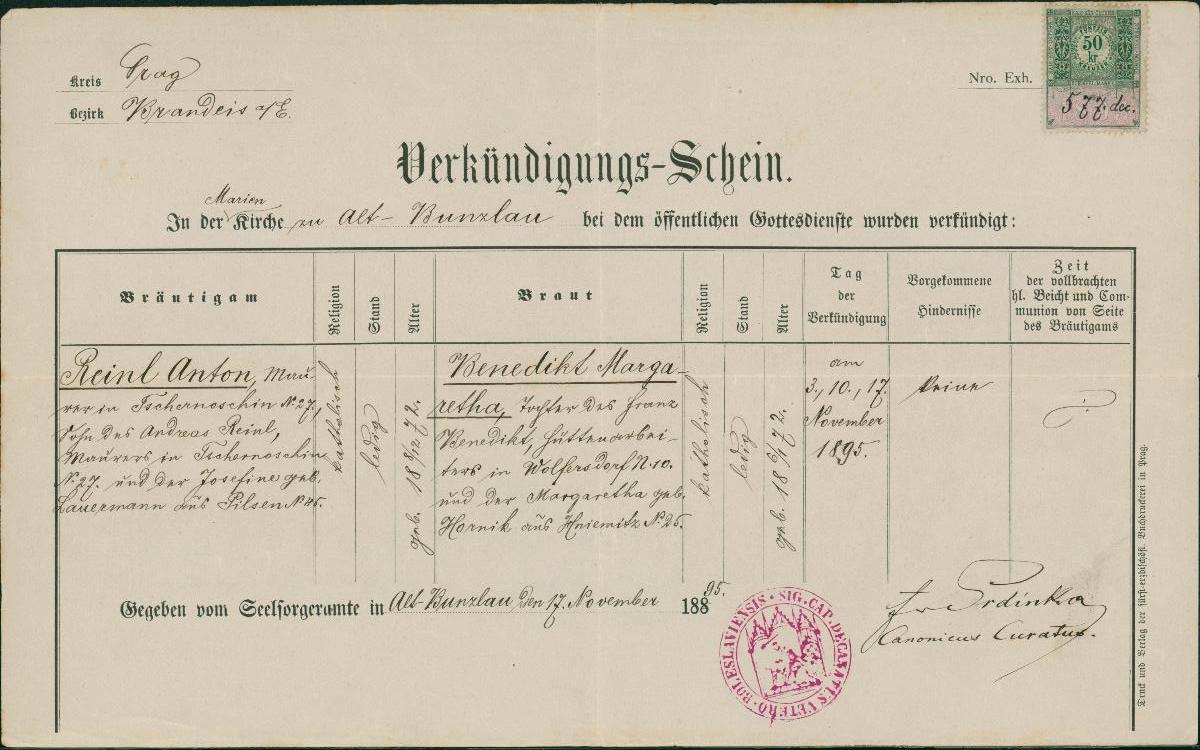 Kreis Prag
Bezirk Brandeis a/E.
Nro. Exh.
50
kr
577. dec.
Verkündigungs-Schein.
Marien
In der Kirche zu Alt-Bunzlau bei dem öffentlichen Gottesdienste wurden verkündigt:
Bräutigam
Religion
Stand
Alter
Braut
Religion
Stand
Alter
Tag
der
Verkündigung
Vorgekommene
Hindernisse
Zeit
der vollbrachten
hl. Beicht und Com-
munion von Seite
des Bräutigams
Reinl Anton, Mau-
rer in Tschernoschin N. 27,
Sohn des Andreas Reinl,
Maurers in Tschernoschin
N. 27. und der Josefine geb.
Lauermann aus Pilsen N. 45.
katholisch
ledig
geb. 18 8/12 72.
Benedikt Marga-
retha, Tochter des Franz
Benedikt, Hüttenarbei-
ters in Wolfersdorf N. 10.
und der Margaretha geb.
Hornik aus Hniemitz N. 25.
katholisch
ledig
geb. 18 6/1 72.
am
3., 10., 17.
November
1895.
Keine
Gegeben vom Seelsorgeramte in Alt-Bunzlau den 17. November 188 95.
SIG. CAP. DECANATUS VETERO-BOLESLAVIENSIS
Fr Srdínko
Canonicus Curatus.
Druck und Verlag der fürst-erzbischöfl. Buchdruckerei in Prag.